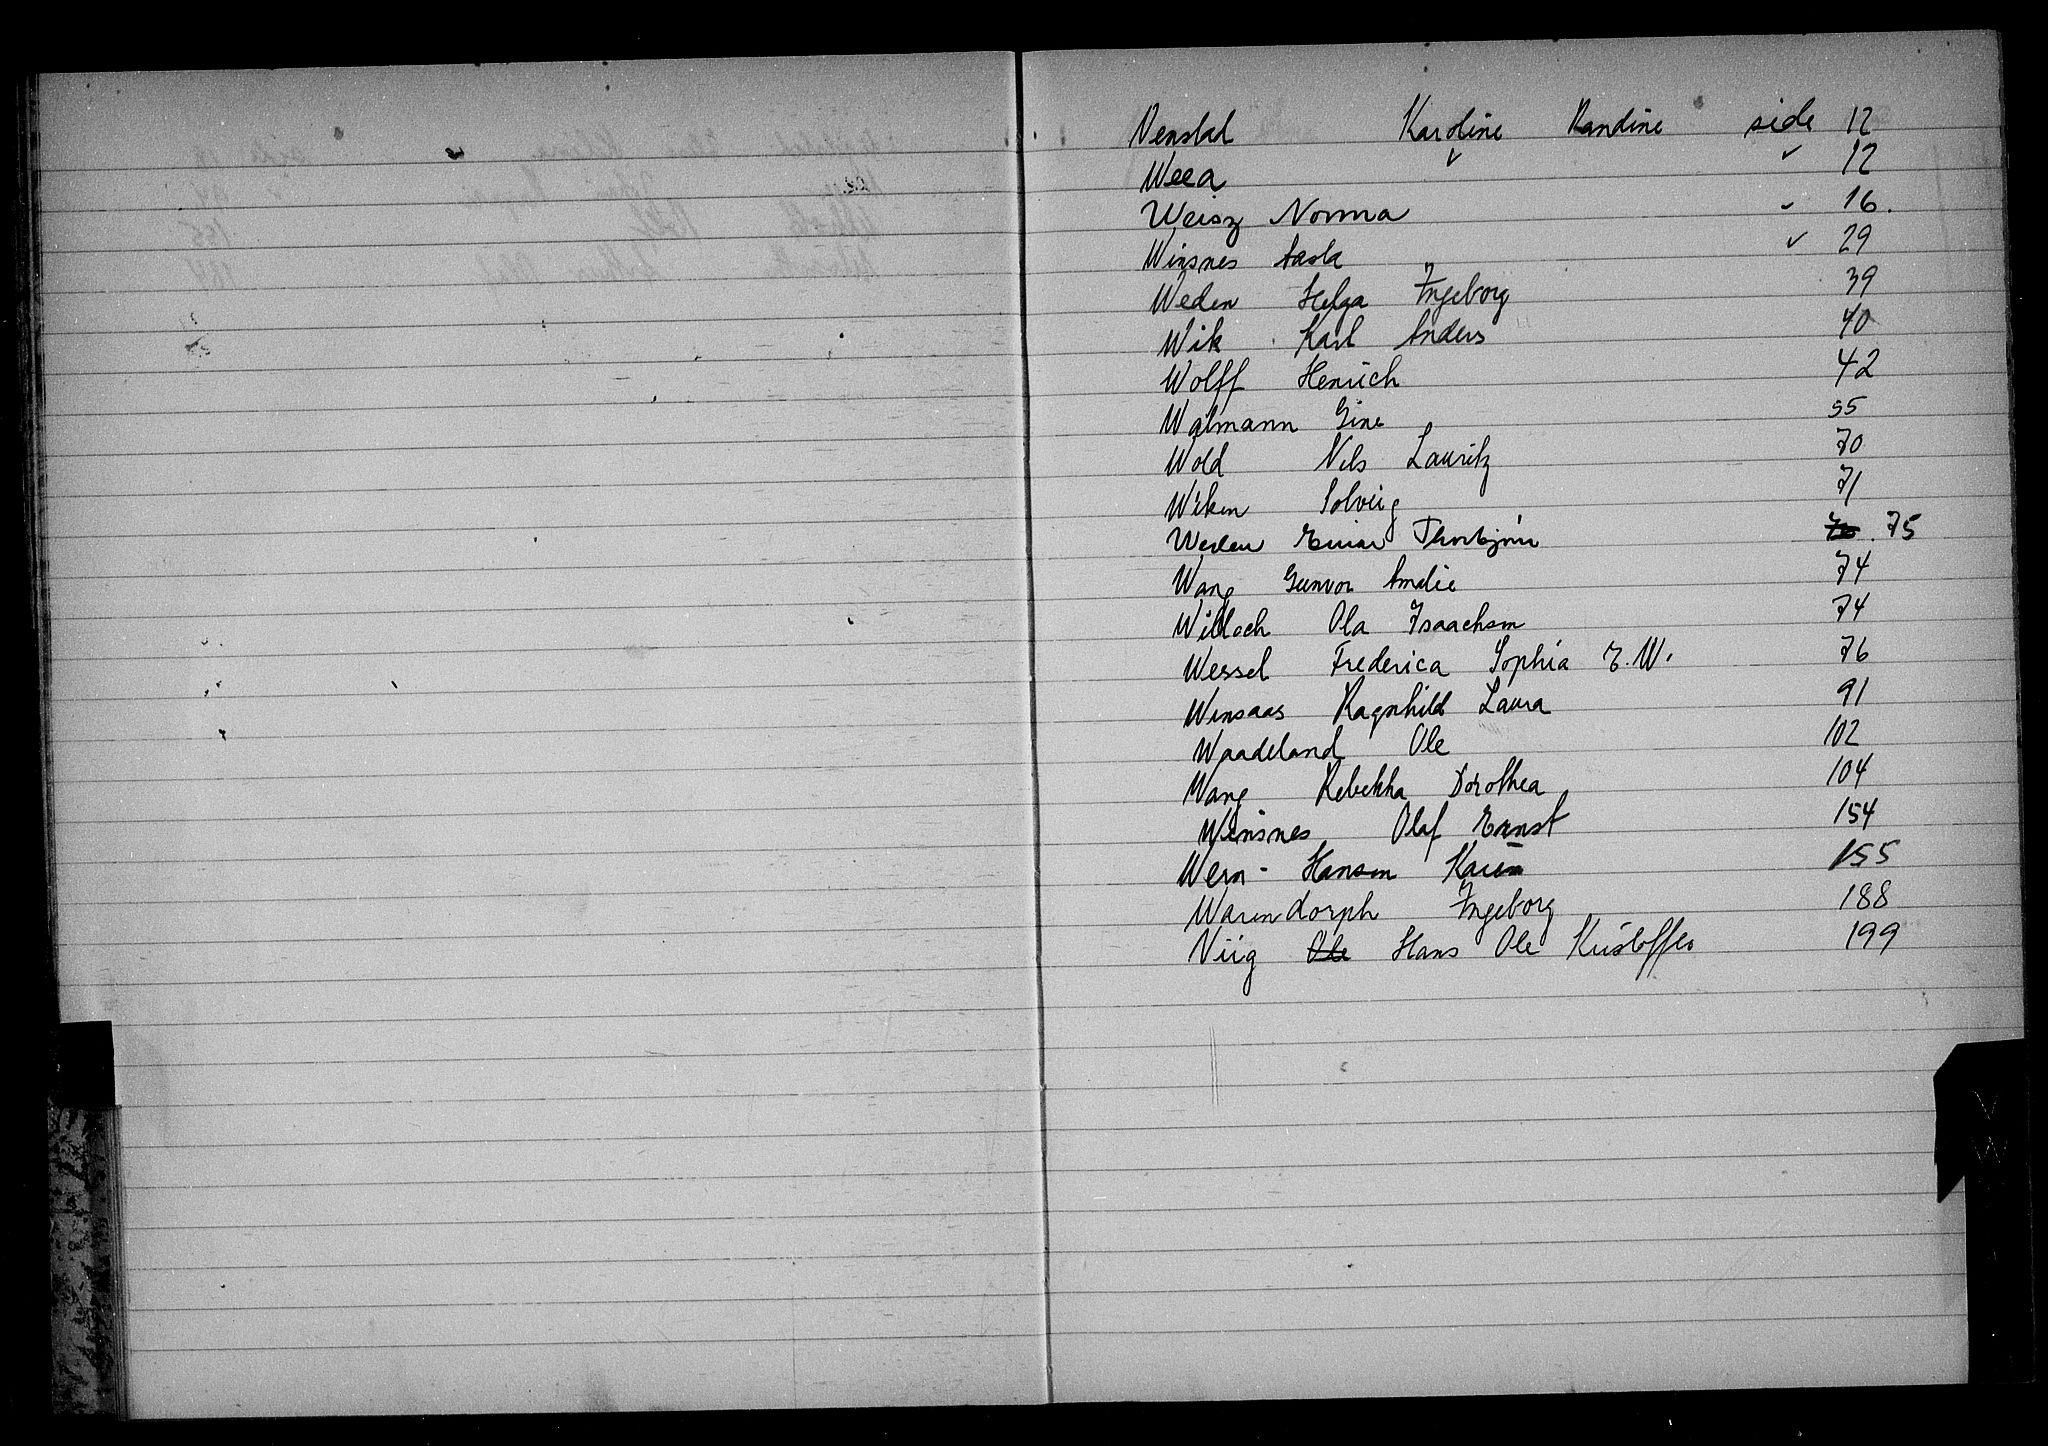 Venstad Karoline Randine side 12
Weea ✓ ✓ 12
Weisz Norma ✓ 16.
Winsnes Aasta ✓ 29
Weden Helga Ingeborg 39
Wik Karl Anders 40
Wolff Henrich 42
Walmann Gine 55
Wold Nils Lauritz 70
Wiken Solveig 71
Weden Einar Thorbjørn 75
Wang Gunvor Amalie 74
Willoch Ola Isaachsen 74
Wessel Frederica Sophia E.W. 76
Winsaas Ragnhild Laura 91
Waadeland Ole 102
Wang Rebekka Dorothea 104
Winsnes Olaf Ernst 154
Wern-Hansen Karen 155
Warendorph Ingeborg 188
Viig Ole Hans Ole Kristoffer 199
V
W